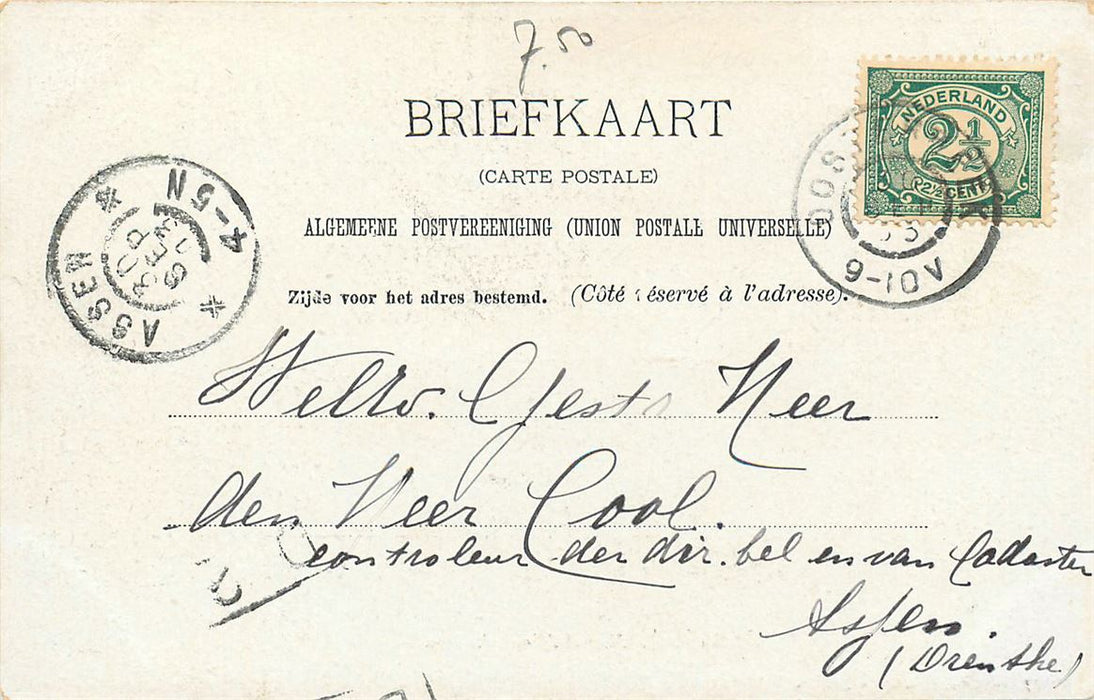 7.50
BRIEFKAART
(CARTE POSTALE)
ALGEMEENE POSTVEREENIGING (UNION POSTALE UNIVERSELLE)
Zijde voor het adres bestemd. (Côté réservé à l'adresse).
NEDERLAND
2 1/2
2½ CENT
OOS
9-10V
ASSEN
30 SEP 03
4-5N
WelEd. Gestr Heer
den Heer Cool.
controleur der dir. bel en van Cadaster
Assen.
(Drenthe)